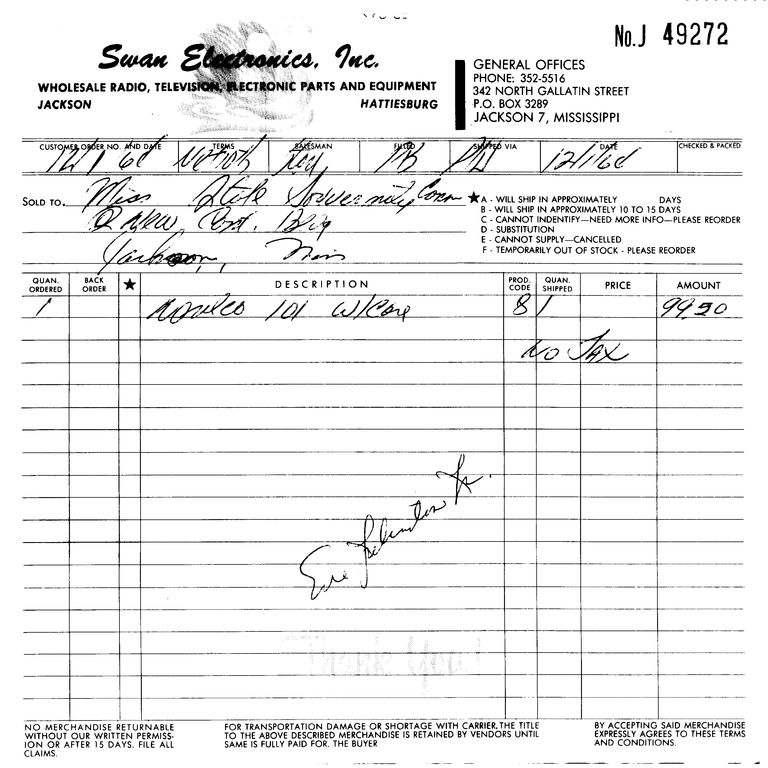 No.J 49272
Swan Electronics, Inc.
WHOLESALE RADIO, TELEVISION, ELECTRONIC PARTS AND EQUIPMENT
JACKSON HATTIESBURG
GENERAL OFFICES
PHONE: 352-5516
342 NORTH GALLATIN STREET
P.O. BOX 3289
JACKSON 7, MISSISSIPPI
CUSTOMER ORDER NO. AND DATE TERMS SALESMAN FILLED SHIPPED VIA DATE CHECKED & PACKED
SOLD TO. Miss State Soverenity Comm
New Bldg
Jackson, Miss
★ A - WILL SHIP IN APPROXIMATELY DAYS
B - WILL SHIP IN APPROXIMATELY 10 TO 15 DAYS
C - CANNOT INDENTIFY—NEED MORE INFO—PLEASE REORDER
D - SUBSTITUTION
E - CANNOT SUPPLY—CANCELLED
F - TEMPORARILY OUT OF STOCK - PLEASE REORDER
QUAN. ORDERED BACK ORDER ★ DESCRIPTION PROD. CODE QUAN. SHIPPED PRICE AMOUNT
1 Norelco 101 W/Case 8 1 99.50
NO TAX
Jr.
Thank You!
NO MERCHANDISE RETURNABLE
WITHOUT OUR WRITTEN PERMISS-
ION OR AFTER 15 DAYS. FILE ALL
CLAIMS.
FOR TRANSPORTATION DAMAGE OR SHORTAGE WITH CARRIER, THE TITLE
TO THE ABOVE DESCRIBED MERCHANDISE IS RETAINED BY VENDORS UNTIL
SAME IS FULLY PAID FOR. THE BUYER
BY ACCEPTING SAID MERCHANDISE
EXPRESSLY AGREES TO THESE TERMS
AND CONDITIONS.